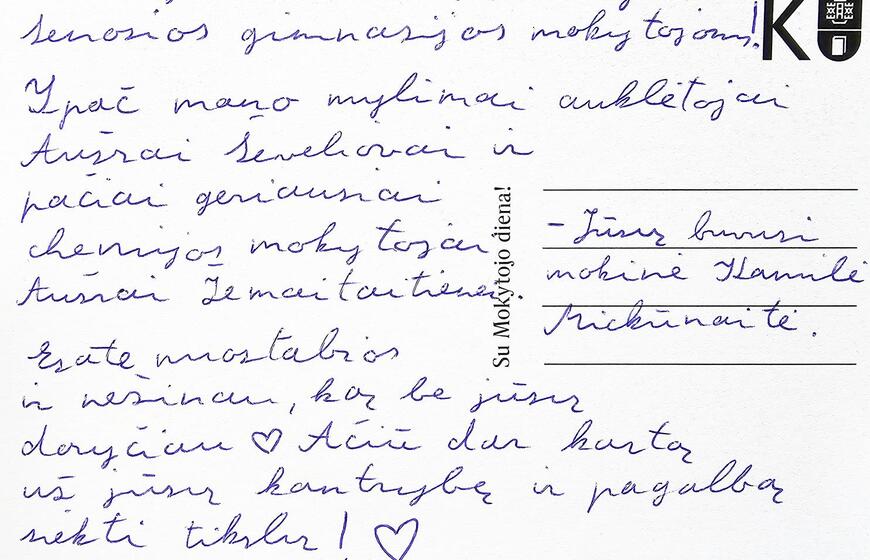 senosios gimnasijos mokytojoms!
Ypač mano mylimai auklėtojai
Aušrai Ševeliovai ir
pačiai geriausiai
chemijos mokytojai
Aušrai Žemaitaitienei.
Esate nuostabios
ir nežinau, ką be jūsų
daryčiau ♡ Ačiū dar kartą
už jūsų kantrybę ir pagalbą
siekti tikslų! ♡
KU
Su Mokytojo diena!
- Jūsų buvusi
mokinė Kamilė
Mickūnaitė.